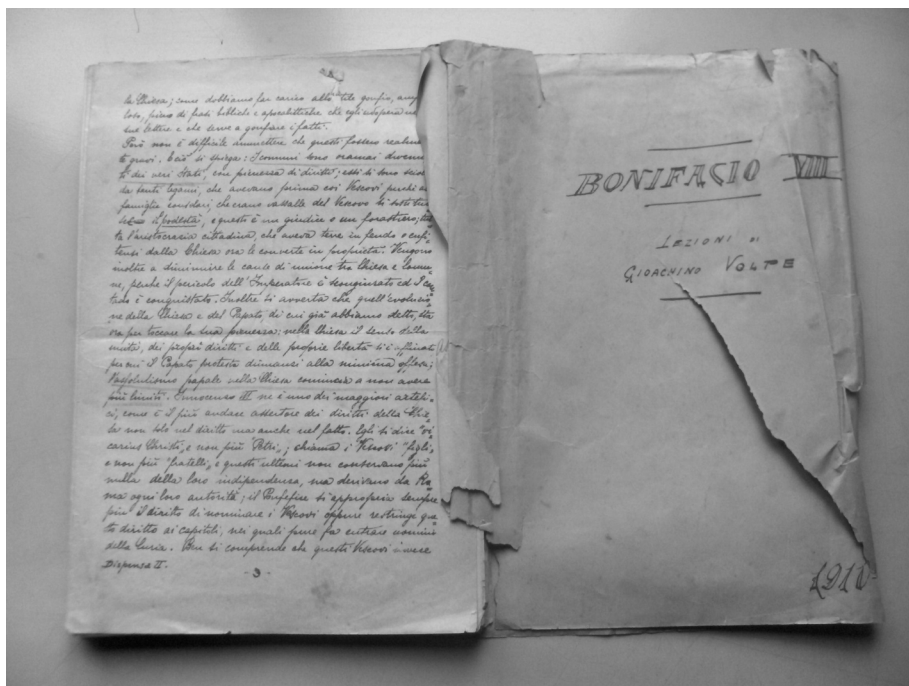 la Chiesa; come dobbiamo far carico allo stile gonfio, amp
loso, pieno di frasi bibliche e apocalittiche che egli
sue lettere e che serve a gonfiare i fatti.
Però non è difficile ammettere che questi fossero realme
te gravi. E ciò si spiega: I comuni sono oramai divenu
ti dei veri Stati, con pienezza di diritti; essi si sono sciol
da tanti legami, che avevano prima coi Vescovi perchè
famiglie consolari, che erano vassalle del Vescovo si sostitui
sce il podestà, e questo è un giudice o un forastiero; tut
ta l'aristocrazia cittadina, che aveva terre in feudo o enfi
teusi dalla Chiesa ora le converte in proprietà. Vengono
inoltre a diminuire le cause di unione tra Chiesa e Comu
ne, perchè il pericolo dell'Imperatore è scongiurato ed il con
tado è conquistato. Inoltre si avverta che quell'evoluzio
ne della Chiesa e del Papato, di cui già abbiamo detto, sta
ora per toccare la sua pienezza: nella Chiesa il senso della
unità, dei propri diritti e delle proprie libertà si è affinato
per cui il Papato protesta dinnanzi alla minima offesa;
l'assolutismo papale nella Chiesa comincia a non avere
più limiti. Innocenzo III ne è uno dei maggiori artefi-
ci, come è il più andare assertore dei diritti della Chie
sa non solo nel diritto ma anche nel fatto. Egli si dice "vi
carius Christi, e non più "Petri,; chiama i Vescovi "figli,
e non più "fratelli, e questi ultimi non conservano più
nulla della loro indipendenza, ma derivano da Ro
ma ogni loro autorità; il Pontefice si appropria sempre
più il diritto di nominare i Vescovi oppure restringe que
to diritto ai capitoli, nei quali pure fa entrare uomini
della Curia. Ben si comprende che questi Vescovi
Dispensa II.
- 3 -
BONIFACIO VIII
LEZIONI DI
GIOACHINO VOLPE
1911